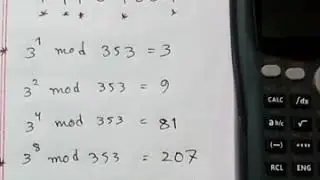 * 3^1 mod 353 = 3
3^2 mod 353 = 9
3^4 mod 353 = 81
* 3^8 mod 353 = 207
CALC ∫dx
a b/c √
(−)
RCL ENG